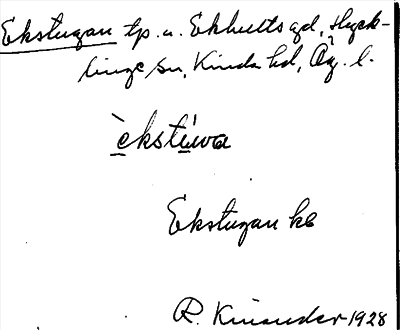 Ekstugan tp. u. Ekhults gd, Hyck-
linge sn, Kinda hd, Ög. l.
èkstu̲wa
Ekstugan kb
R. Kinander 1928